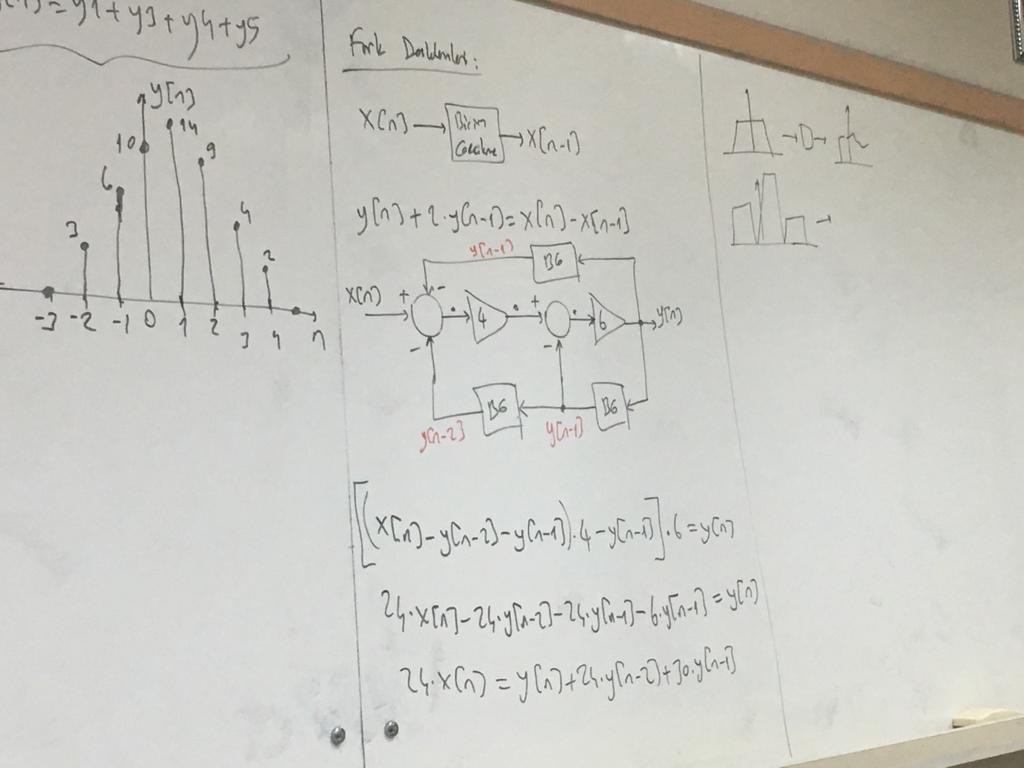 y[n] = y1 + y3 + y4 + y5
y[n]
14
10
9
6
4
3
2
-3 -2 -1 0 1 2 3 4 n
Fark Denklemleri:
x[n] → Birim Gecikme → x[n-1]
y[n] + 2·y[n-1] = x[n] - x[n-1]
y[n-1] BG
x[n] + - 4 + 6 y[n]
- -
BG BG
y[n-2] y[n-1]
[(x[n] - y[n-2] - y[n-1])·4 - y[n-1]]·6 = y[n]
24·x[n] - 24·y[n-2] - 24·y[n-1] - 6·y[n-1] = y[n]
24·x[n] = y[n] + 24·y[n-2] + 30·y[n-1]